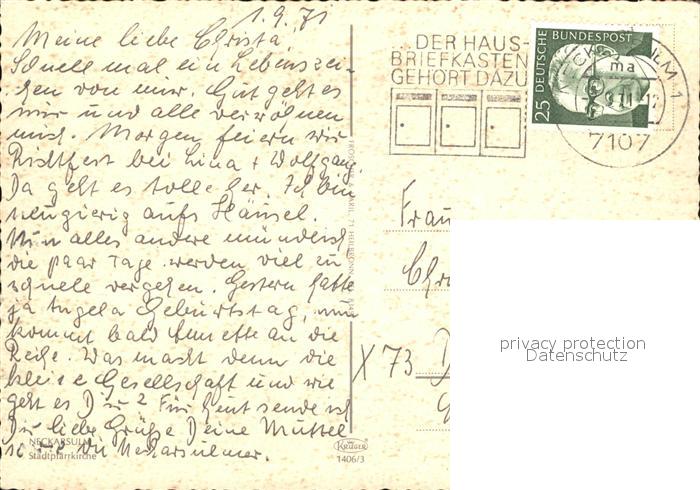 1.9.71
Meine liebe Christa,
Schnell mal ein Lebenszei-
chen von mir. Gut geht es
mir und alle verwöhnen
mich. Morgen feiern wir
Richtfest bei Lina + Wolfgang.
Da geht es tolle her. Ich bin
neugierig aufs Häusel.
Nun alles andere mündlich
die paar Tage werden viel zu
schnelle vergehen. Gestern hatte
ja Angela Geburtstag, nun
kommt bald Annette an die
Reihe. Was macht denn die
kleine Gesellschaft und wie
geht es Dir? Für heut sende ich
Dir liebe Grüße Deine Muttel
die Neckarsulmer.
NECKARSULM
Stadtpfarrkirche
KRÜGER
1406/3
...DER HAUS-
BRIEFKASTEN
GEHÖRT DAZU
DEUTSCHE BUNDESPOST
25
ma
7107
Frau
Chr
X 73
privacy protection
Datenschutz